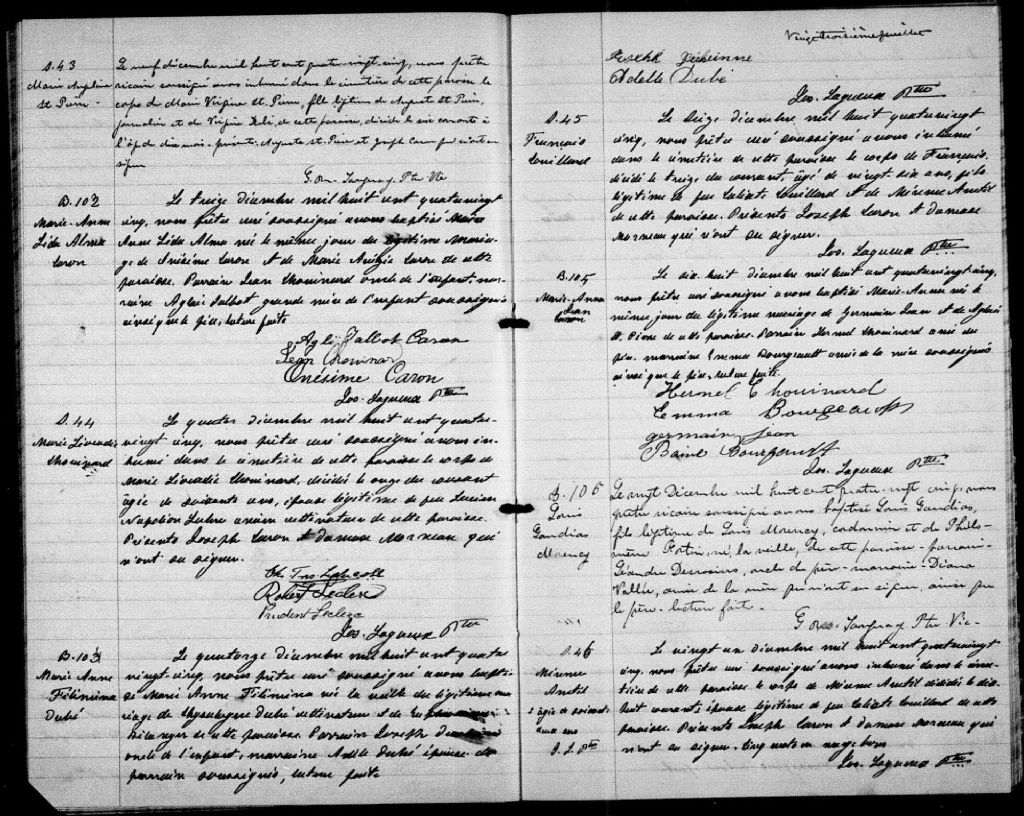 S. 43
Marie Angelina
St Pierre
Le neuf décembre mil huit cent quatre-vingt-cinq, nous prêtre
vicaire soussigné avons inhumé dans le cimetière de cette paroisse le
corps de Marie Virginie St. Pierre, fille légitime de August St. Pierre,
journalier et de Virginie de cette paroisse, décédée le six courant à
l'âge de dix mois. présents Auguste St. Pierre et Joseph Caron qui n'ont su
signer
Ptr Vic
B. 102
Marie-Anne
Léda Alma
Caron
Le treize décembre mil huit cent quatrevingt
cinq, nous prêtre curé soussigné avons baptisé Marie
Anne Léda Alma née le même jour du légitime maria-
ge de Onésime Caron et de Marie Caron de cette
paroisse. Parrain Jean Chouinard oncle de l'enfant, mar-
raine Aglaé Talbot grande mère de l'enfant soussignés
ainsi que le père, lecture faite
Aglé Talbot Caron
Jean Chouinard
Onésime Caron
Jos. Lagueux Ptre
S. 44
Marie Léocadie
Chouinard
Le quatorze décembre mil huit cent quatre-
vingt cinq, nous prêtre curé soussigné avons in-
humé dans le cimetière de cette paroisse le corps de
Marie Léocadie Chouinard, décédée le onze du courant
âgée de soixante ans, épouse légitime de feu Lucien
Napoléon Leclerc ancien cultivateur de cette paroisse.
Présents Joseph Caron et Damase Morneau qui
n'ont su signer.
Robert Leclerc
Prudent Leclerc
Jos. Lagueux Ptre
B. 103
Marie Anne
Félimina
Dubé
Le quatorze décembre mil huit cent quatre
vingt-cinq, nous prêtre curé soussigné avons bapti-
sé Marie Anne Félimina née la veille du légitime ma-
riage de Dubé cultivateur et de
Bélanger de cette paroisse. Parrain Joseph
oncle de l'enfant, marraine Adèle Dubé épouse du
parrain soussignés, lecture faite
Vingt troisième feuillet
Joseph
Adelle Dubé
Jos. Lagueux Ptre
S. 45
François
Couillard
Le Seize décembre mil huit cent quatrevingt
cinq, nous prêtre curé soussigné avons inhumé
dans le cimetière de cette paroisse le corps de François
décédé le treize du courant, âgé de vingt-six ans, fils
légitime de feu Calixte Couillard et de Mérence Anctil
de cette paroisse. Présents Joseph Caron et Damase
Morneau qui n'ont su signer.
Jos. Lagueux Ptre
B. 105
Marie-Anna
Jean
Le dix huit décembre mil huit cent quatrevingt cinq,
nous prêtre curé soussigné avons baptisé Marie-Anna née le
même jour du légitime mariage de Germain Jean et de Aglaé
St. Pierre de cette paroisse. Parrain Hermel Chouinard ami du
père, marraine Emma Bourgault amie de la mère soussignés
ainsi que le père, lecture faite.
Hermel Chouinard
Emma Bourgault
germain jean
Bourgault
Jos. Lagueux Ptre
B. 106
Louis
Gaudias
Morency
Le vingt Décembre mil huit cent quatre-vingt cinq, nous
prêtre vicaire soussigné avons baptisé Louis Gaudias,
fils légitime de Louis Morency, cordonnier et de Philo-
mène Fortin, né la veille, de cette paroisse - parrain
Léandre Desrosiers, oncle du père - marraine - Diana
Vallée, amie de la mère qui n'ont su signer, ainsi que
le père. lecture faite.
Ptr Vic-
S. 46
Mérence
Anctil
âgée de soixante
deux ans
J. L. Ptre
Le vingt un décembre mil huit cent quatrevingt
cinq, nous prêtre curé soussigné avons inhumé dans le cime-
tière de cette paroisse le corps de Mérence Anctil décédée le dix
huit courant épouse légitime de feu Calixte Couillard de cette
paroisse. Présents Joseph Caron et Damase Morneau qui
n'ont su signer. Cinq mots en marge bons
Jos. Lagueux Ptre